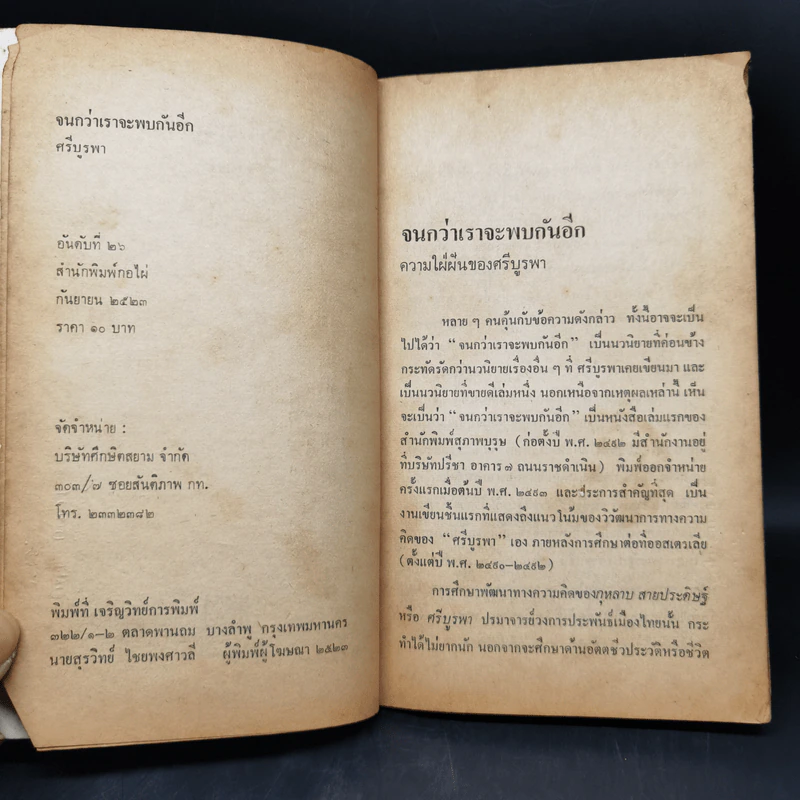 จนกว่าเราจะพบกันอีก
ศรีบูรพา
อันดับที่ ๒๖
สำนักพิมพ์กอไผ่
กันยายน ๒๕๒๓
ราคา ๑๐ บาท
จัดจำหน่าย :
บริษัทศึกษิตสยาม จำกัด
๓๐๓/๗ ซอยสันติภาพ กท.
โทร. ๒๓๓๒๓๘๒
พิมพ์ที่ เจริญวิทย์การพิมพ์
๓๒๒/๑-๒ ตลาดพานถม บางลำพู กรุงเทพมหานคร
นายสุรวิทย์ ไชยพงศาวลี ผู้พิมพ์ผู้โฆษณา ๒๕๒๓
จนกว่าเราจะพบกันอีก
ความใฝ่ฝันของศรีบูรพา
หลาย ๆ คนคุ้นกับข้อความดังกล่าว ทั้งนี้อาจจะเป็น
ไปได้ว่า “จนกว่าเราจะพบกันอีก” เป็นนวนิยายที่ค่อนข้าง
กระทัดรัดกว่านวนิยายเรื่องอื่น ๆ ที่ ศรีบูรพาเคยเขียนมา และ
เป็นนวนิยายที่ขายดีเล่มหนึ่ง นอกเหนือจากเหตุผลเหล่านี้ เห็น
จะเป็นว่า “จนกว่าเราจะพบกันอีก” เป็นหนังสือเล่มแรกของ
สำนักพิมพ์สุภาพบุรุษ (ก่อตั้งปี พ.ศ. ๒๔๙๒ มีสำนักงานอยู่
ที่บริษัทปรีชา อาคาร ๗ ถนนราชดำเนิน) พิมพ์ออกจำหน่าย
ครั้งแรกเมื่อต้นปี พ.ศ. ๒๔๙๓ และประการสำคัญที่สุด เป็น
งานเขียนชิ้นแรกที่แสดงถึงแนวโน้มของวิวัฒนาการทางความ
คิดของ “ศรีบูรพา” เอง ภายหลังการศึกษาต่อที่ออสเตรเลีย
(ตั้งแต่ปี พ.ศ. ๒๔๙๐-๒๔๙๒)
การศึกษาพัฒนาทางความคิดของกุหลาบ สายประดิษฐ์
หรือ ศรีบูรพา ปรมาจารย์วงการประพันธ์เมืองไทยนั้น กระ
ทำได้ไม่ยากนัก นอกจากจะศึกษาด้านอัตตชีวประวัติหรือชีวิต